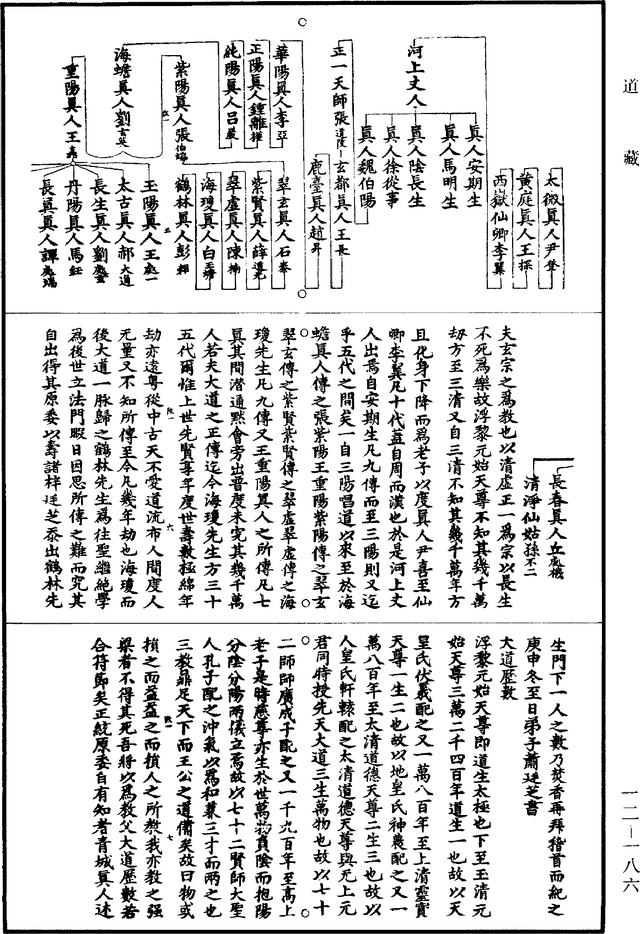 道藏
太微真人尹登
黃庭真人王探
西嶽仙卿李翼
河上丈人
真人安期生
真人馬明生
真人陰長生
真人徐從事
真人魏伯陽
正一天師張道陵
玄都真人王長
鹿臺真人趙昇
華陽真人李亞
正陽真人鍾離權
純陽真人呂巖
海蟾真人劉玄英
紫陽真人張伯端
重陽真人王嚞
翠玄真人石泰
紫賢真人薛道光
翠虛真人陳楠
海瓊真人白玉蟾
鶴林真人彭耜
玉陽真人王處一
太古真人郝大通
長生真人劉處玄
丹陽真人馬鈺
長真真人譚處端
長春真人丘處機
清淨仙姑孫不二
夫玄宗之為教也以清虛正一為宗以長生
不死為樂故浮黎元始天尊不知其幾千萬
劫方至三清又自三清不知其幾千萬年方
且化身下降而為老子以度真人尹喜至仙
卿李翼凡十代蓋自周而漢也於是河上丈
人出焉自安期生凡九傳而至三陽則又迄
乎五代之間矣一自三陽唱道以來至於海
蟾真人傳之張紫陽王重陽紫陽傳之翠玄
翠玄傳之紫賢紫賢傳之翠虛翠虛傳之海
瓊先生凡九傳又王重陽真人之所傳凡七
真其間潛通默會旁出晉度未究其幾千萬
人若夫大道之正傳迄今海瓊先生方三十
五代爾惟上世先賢尊年度世壽數極綿年
劫亦遠粵從中古天不愛道流布人間度人
無量又不知所傳至今凡幾年劫也海瓊而
後大道一脉歸之鶴林先生為往聖繼絕學
為後世立法門暇日因思所傳之難而究其
自出得其原委以壽諸梓廷芝忝出鶴林先
生門下一人之數乃焚香再拜稽首而紀之
庚申冬至日弟子蕭廷芝書
大道歷數
浮黎元始天尊即道生太極也下至玉清元
始天尊三萬二千四百年道生一也故以天
皇氏伏羲配之又一萬八百年至上清靈寶
天尊一生二也故以地皇氏神農配之又一
萬八百年至太清道德天尊二生三也故以
人皇氏軒轅配之太清道德天尊與元上元
君同時授先天大道三生萬物也故以七十
二師師廣成子配之又一千九百年至高上
老子是時慈尊亦生於世萬物負陰而抱陽
分陰分陽兩儀立焉故以七十二賢師大聖
人孔子配之沖氣以為和兼三才而兩之也
三教鼎足天下而王公之道備矣故曰物或
損之而益益之而損人之所教我亦教之強
梁者不得其死吾將以為教父大道歷數若
合符節矣正統原委自有知者青城真人述
一二—一八六